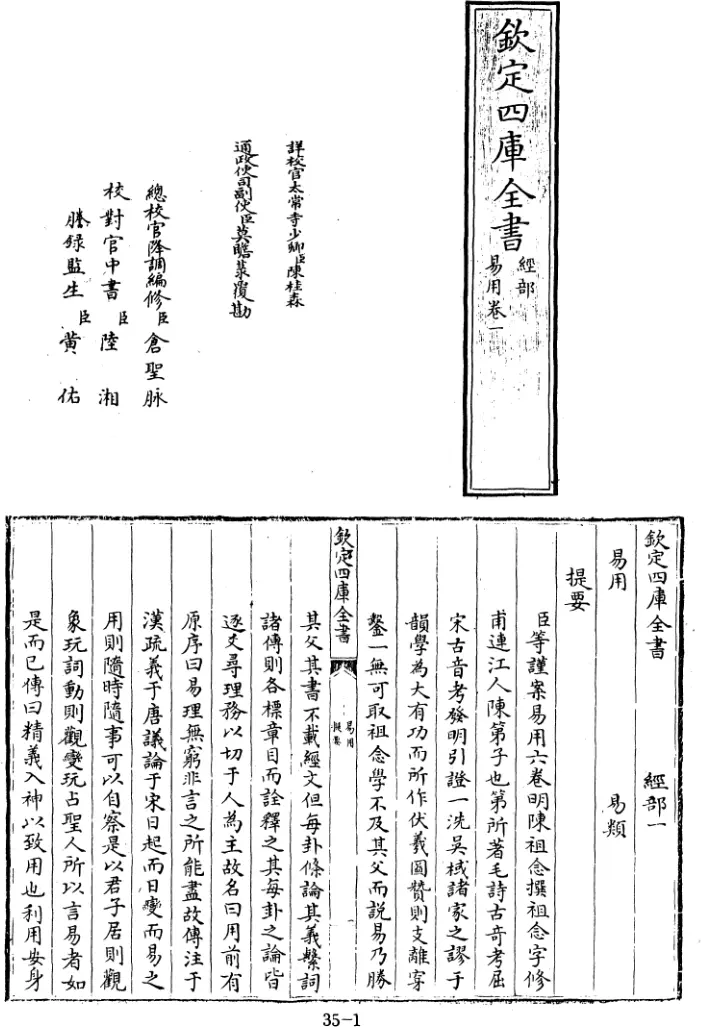 欽定四庫全書
經部
易用卷一
詳校官太常寺少卿臣陳桂森
通政使司副使臣莫瞻菉覆勘
總校官降調編修臣倉聖脉
校對官中書臣陸湘
謄錄監生臣黃佑
欽定四庫全書 經部一
易用 易類
提要
臣等謹案易用六卷明陳祖念撰祖念字修
甫連江人陳第子也第所著毛詩古音考屈
宋古音考發明引證一洗吳棫諸家之謬于
韻學為大有功而所作伏羲圖贊則支離穿
鑿一無可取祖念學不及其父而說易乃勝
欽定四庫全書
易用
提要
其父其書不載經文但每卦條論其義繫詞
諸傳則各標章目而詮釋之其每卦之論皆
逐爻尋理務以切于人為主故名曰用前有
原序曰易理無窮非言之所能盡故傳注于
漢疏義于唐議論于宋日起而日變而易之
用則隨時隨事可以自察是以君子居則觀
象玩詞動則觀變玩占聖人所以言易者如
是而已傳曰精義入神以致用也利用安身
35-1